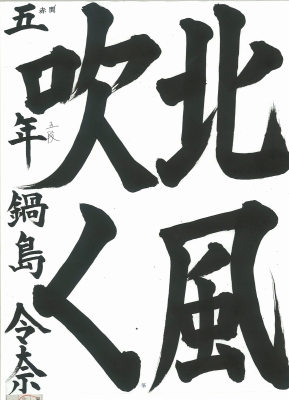 北風
吹く
五年 鍋島 令奈
赤間
五段